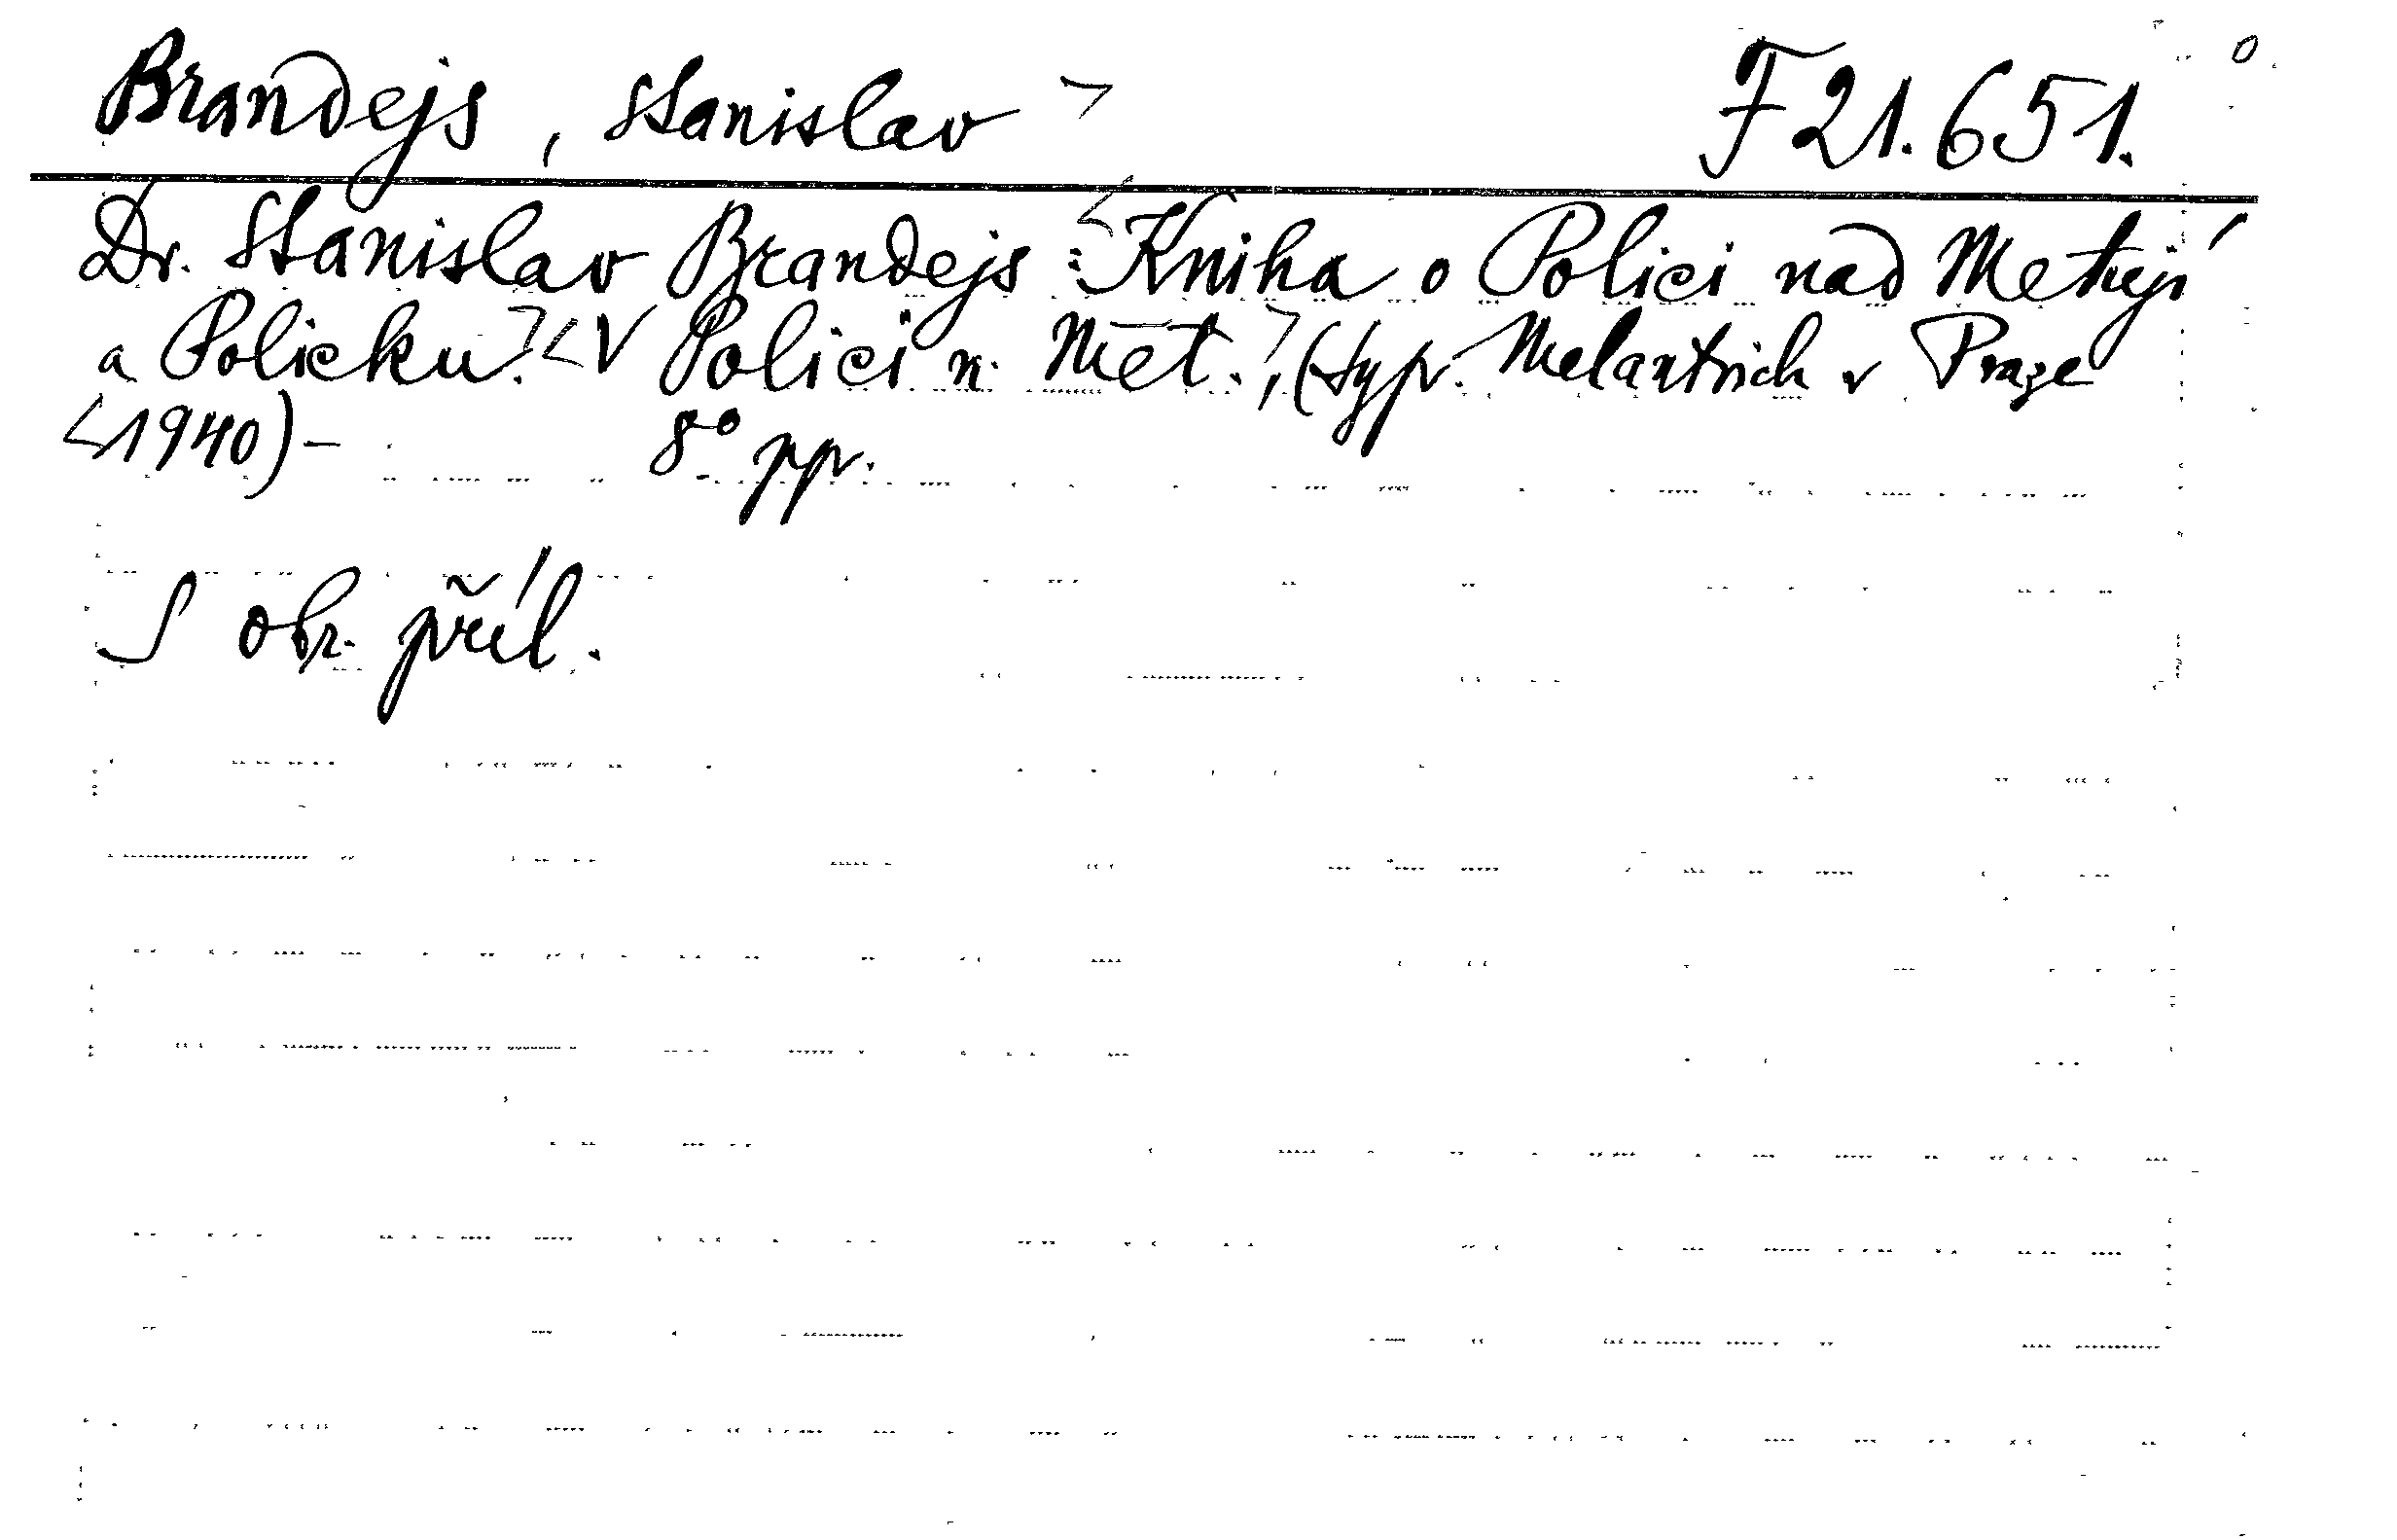 Brandejs, Stanislav > F 21.651.
Dr. Stanislav Brandejs : <Kniha o Polici nad Metují
a Policku.> <V Polici n. Met.>, (typ. Melantrich v Praze
<1940) – 8° ppr.
S obr. příl.